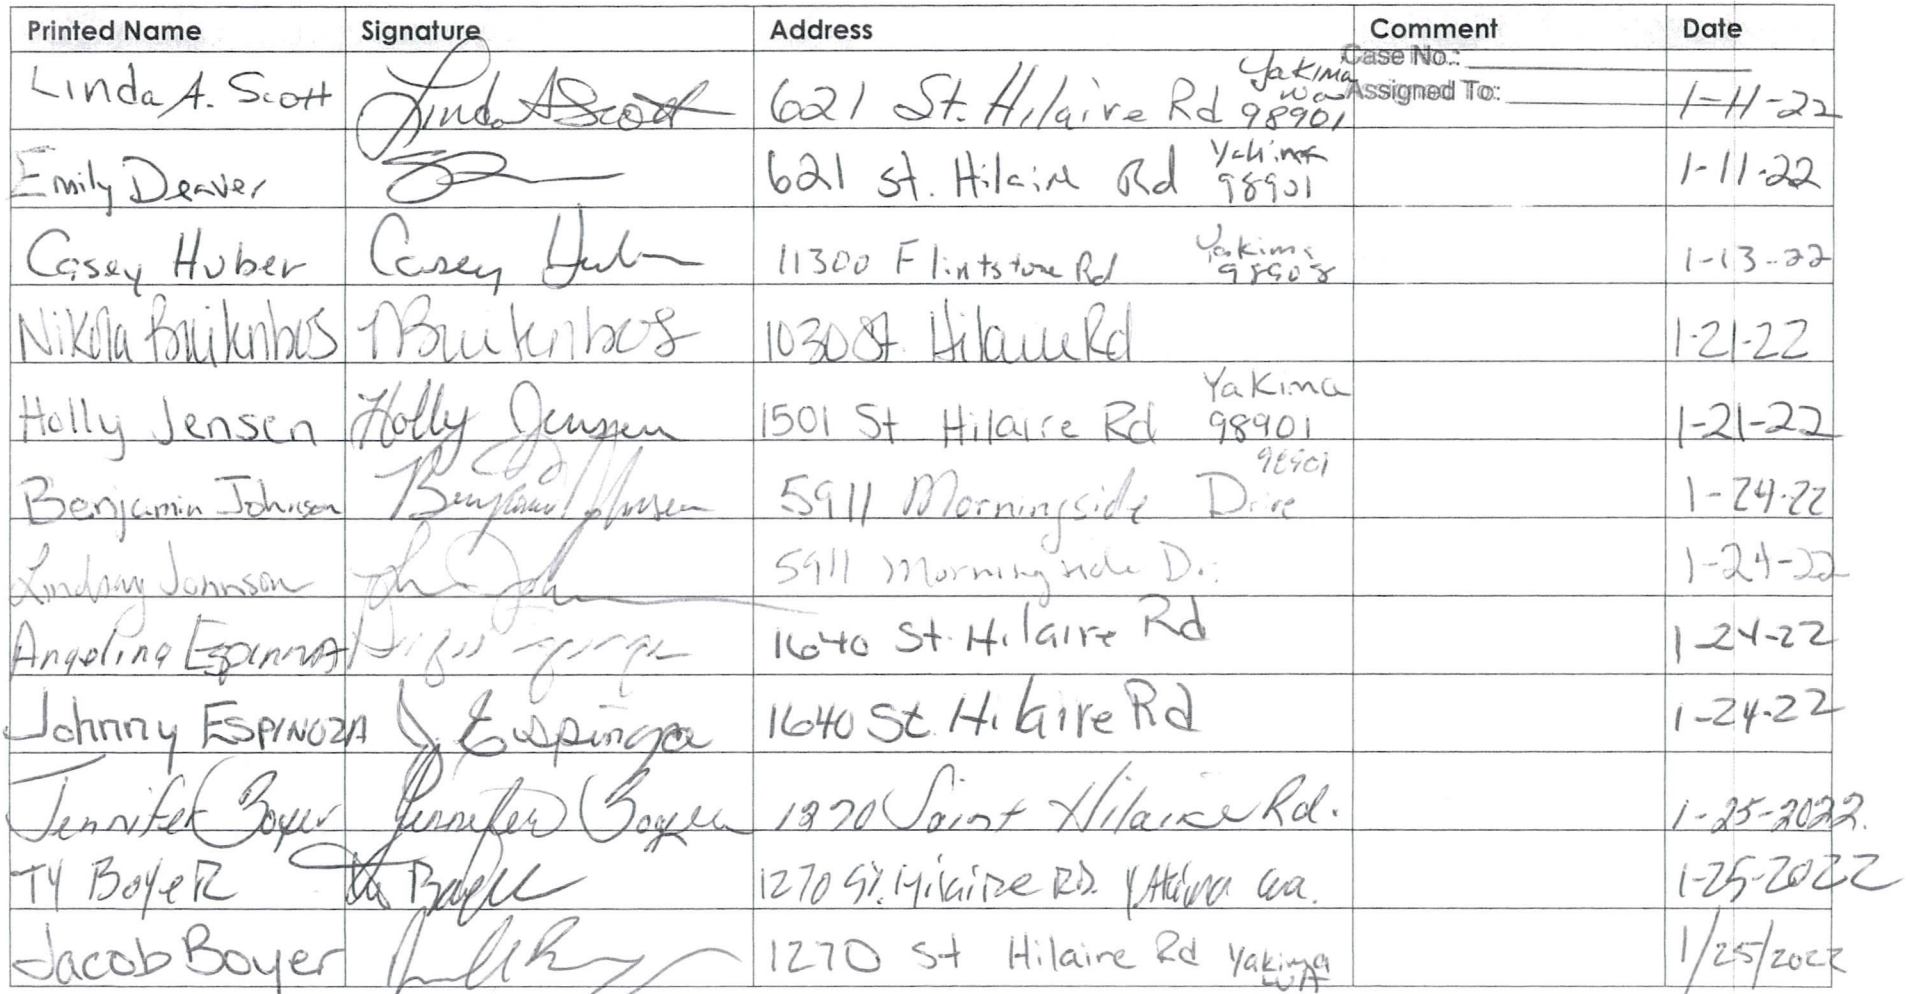 Printed Name Signature Address Comment Date
Case No.:
Assigned To:
Linda A. Scott Linda A Scott 621 St. Hilaire Rd Yakima Wa 98901 1-11-22
Emily Deaver 621 St. Hilaire Rd Yakima 98901 1-11-22
Casey Huber Casey Hub 11300 Flintstone Rd Yakima 98908 1-13-22
Nikola Buitenbos NBuitenbos 1030 St. Hilaire Rd 1-21-22
Holly Jensen Holly Jensen 1501 St Hilaire Rd Yakima 98901 1-21-22
Benjamin Johnson Benjamin Johnson 5911 Morningside Drive 98901 1-24-22
Lindsay Johnson 5911 Morningside Dr. 1-24-22
Angelina Espinoza 1640 St. Hilaire Rd 1-24-22
Johnny ESPINOZA J. Espinoza 1640 St. Hilaire Rd 1-24-22
Jennifer Boyer Jennifer Boyer 1270 Saint Hilaire Rd. 1-25-2022.
TY BoyeR Ty Boyer 1270 St. Hilaire RD. Yakima Wa. 1-25-2022
Jacob Boyer 1270 St Hilaire Rd Yakima WA 1/25/2022